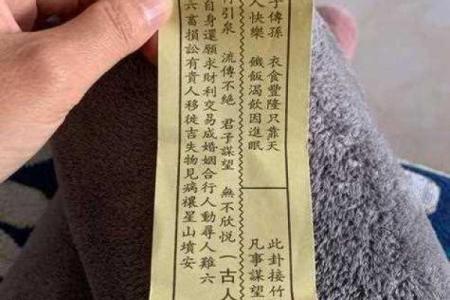 子傳孫　衣食豐隆只靠天
人快樂　饑飯渴飲困進眠
此卦接竹
凡事謀望
引泉　流傳不絕　君子謀望　無不欣悅（古人
自身還願求財利交易成婚姻合行人動尋人難六
六畜損訟有貴人移徙吉失物見病禳星山墳安